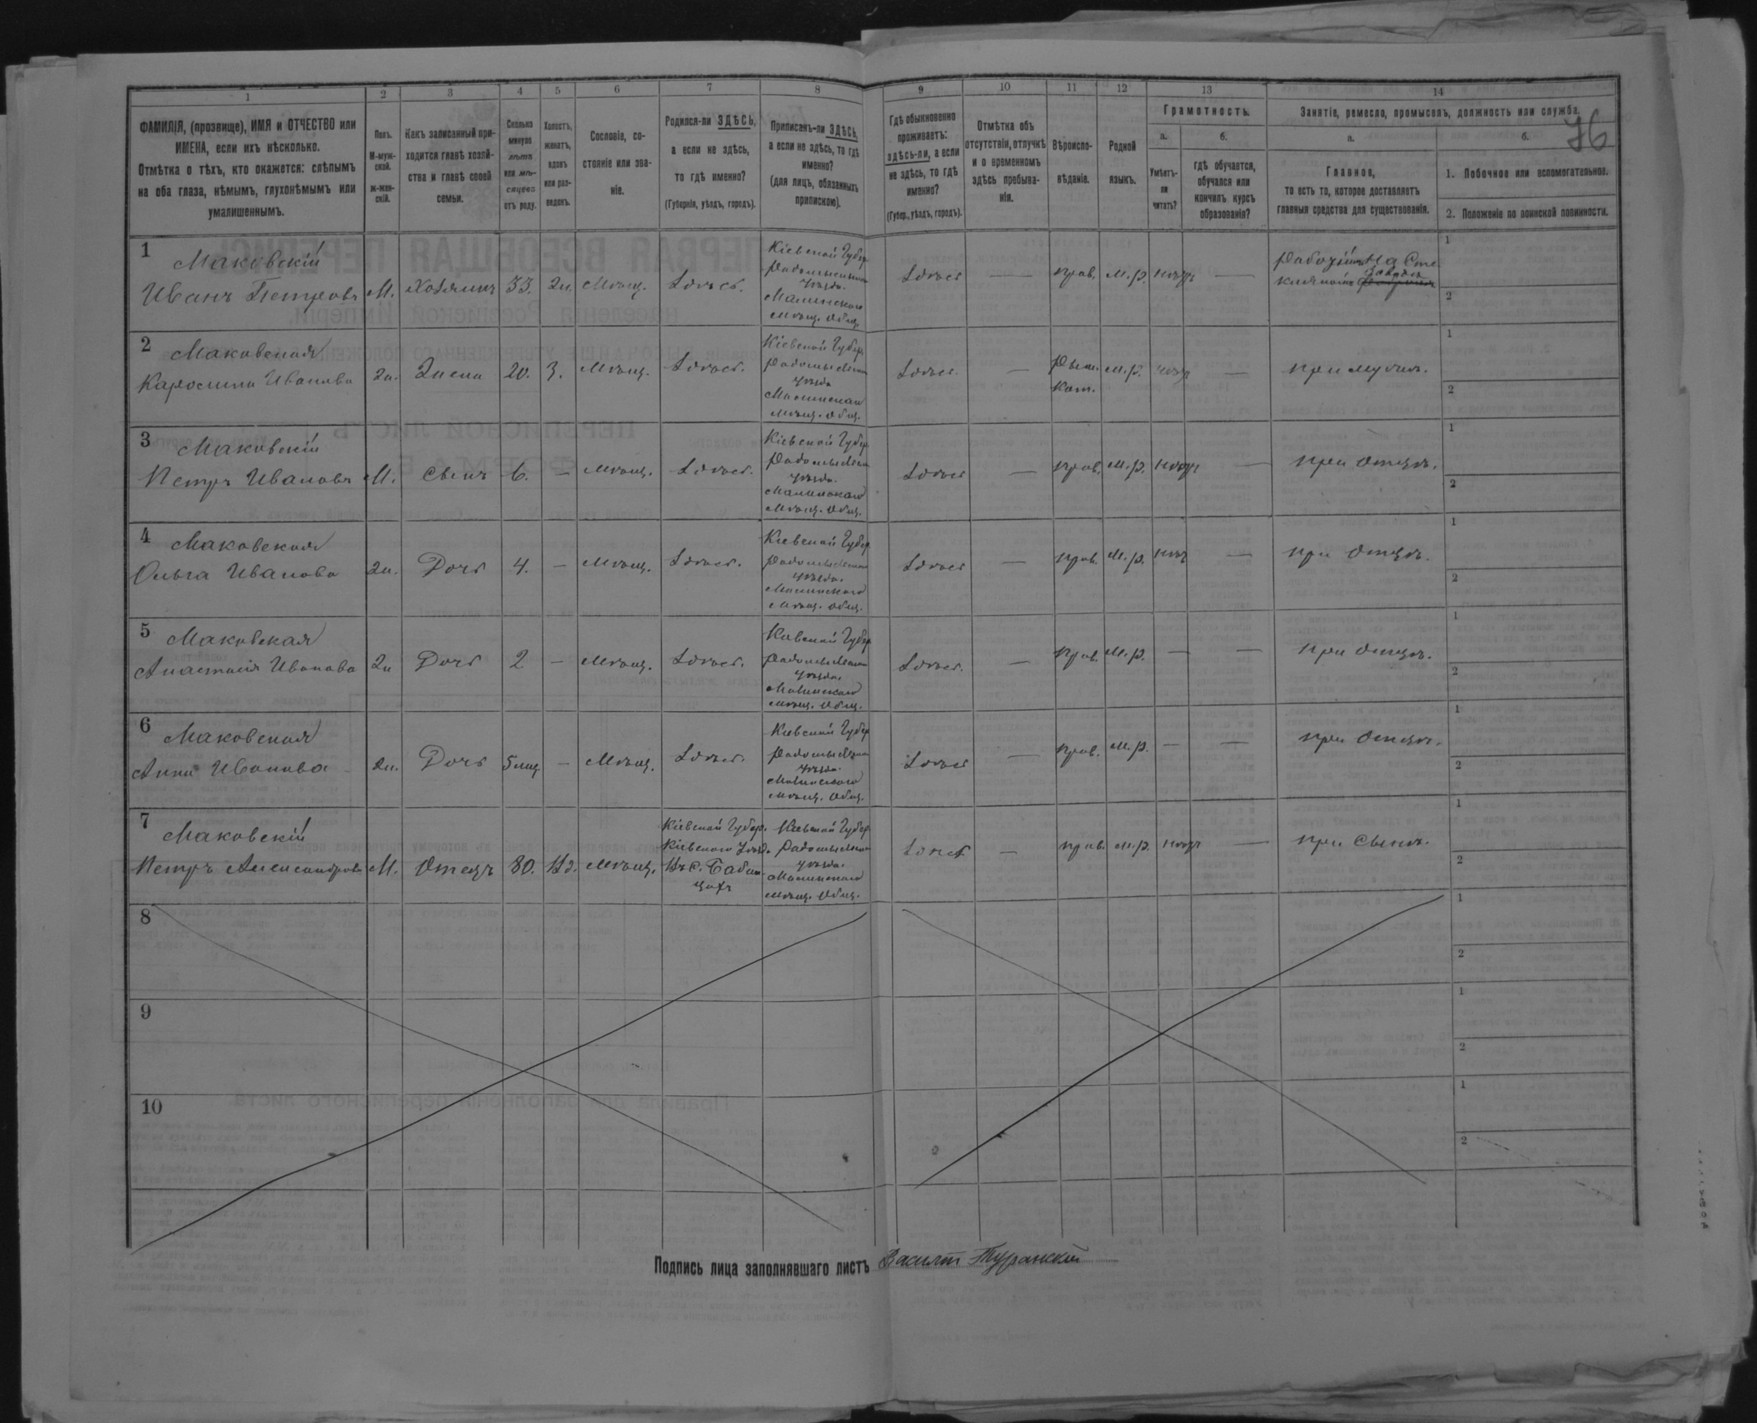 76
1 2 3 4 5 6 7 8 9 10 11 12 13 14
ФАМИЛІЯ, (прозвище), ИМЯ и ОТЧЕСТВО или
ИМЕНА, если ихъ нѣсколько.
Отмѣтка о тѣхъ, кто окажется: слѣпымъ
на оба глаза, нѣмымъ, глухонѣмымъ или
умалишеннымъ.
Полъ.
М-муж-
ской.
ж-жен-
скій.
Какъ записанный при-
ходится главѣ хозяй-
ства и главѣ своей
семьи.
Сколько
минуло
лѣтъ
или мѣ-
сяцевъ
отъ роду.
Холостъ,
женатъ,
вдовъ
или раз-
веденъ.
Сословіе, со-
стояніе или зва-
ніе.
Родился-ли ЗДѢСЬ,
а если не здѣсь,
то гдѣ именно?
(Губернія, уѣздъ, городъ).
Приписанъ-ли ЗДѢСЬ,
а если не здѣсь, то гдѣ
именно?
(для лицъ, обязанныхъ
припискою).
Гдѣ обыкновенно
проживаетъ:
здѣсь-ли, а если
не здѣсь, то гдѣ
именно?
(Губер., уѣздъ, городъ).
Отмѣтка объ
отсутствіи, отлучкѣ
и о временномъ
здѣсь пребыва-
ніи.
Вѣроиспо-
вѣданіе.
Родной
языкъ.
Грамотность.
а.
Умѣетъ-
ли
читать?
б.
гдѣ обучается,
обучался или
кончилъ курсъ
образованія?
Занятіе, ремесло, промыселъ, должность или служба.
а.
Главное,
то есть то, которое доставляетъ
главныя средства для существованія.
б.
1. Побочное или вспомогательное.
2. Положеніе по воинской повинности.
1 Маковскій
Иванъ Петровъ М. Хозяинъ 33. Мѣщ. Здѣсь.
Кіевской Губер
Радомысльскаго
уѣзда.
Малинского
Мѣщ. Общ.
Здѣсь — прав. М.р. нѣтъ —
Рабочій на Сте
завод
1
2
2 Маковская
Каролина Иванова Жена 20. З. Мѣщ. Здѣсь.
Кіевской Губер.
уѣзда
Мѣщ. Общ.
Здѣсь — Рим. М.р. нѣтъ —
Кат.
при мужѣ.
1
2
3 Маковскій
Петръ Ивановъ М. Сынъ 6. — Мѣщ. Здѣсь.
Кіевской Губер
уѣзда.
Мѣщ. Общ.
Здѣсь — прав. М.р. нѣтъ — при Отцѣ.
1
2
4 Маковская
Ольга Иванова Дочь 4. — Мѣщ. Здѣсь.
Кіевской Губер
уѣзда.
Малинского
Мѣщ. Общ.
Здѣсь — прав. М.р. нѣтъ — при Отцѣ.
1
2
5 Маковская
Анастасія Иванова Дочь 2 — Мѣщ. Здѣсь.
Кіевской Губер
уѣзда.
Малинского
Мѣщ. Общ.
Здѣсь. — прав. М.р. — — при Отцѣ.
1
2
6 Маковская
Анна Иванова Дочь 5 мѣц — Мѣщ. Здѣсь
Кіевской Губер
уѣзда.
Малинского
Мѣщ. Общ.
Здѣсь — прав. М.р. — — при Отцѣ.
1
2
7 Маковскій
Петръ Александровъ М. Отецъ 80. Вд. Мѣщ.
Кіевской Губер.
Кіевского Уѣзд.
Въ с. Бабин-
цахъ
Кіевской Губер
уѣзда.
Малинского
Мѣщ. Общ.
Здѣсь — прав. М.р. нѣтъ — при Сынѣ.
1
2
8
1
2
9
1
2
10
1
2
Подпись лица заполнявшаго листъ Василій Туранскій